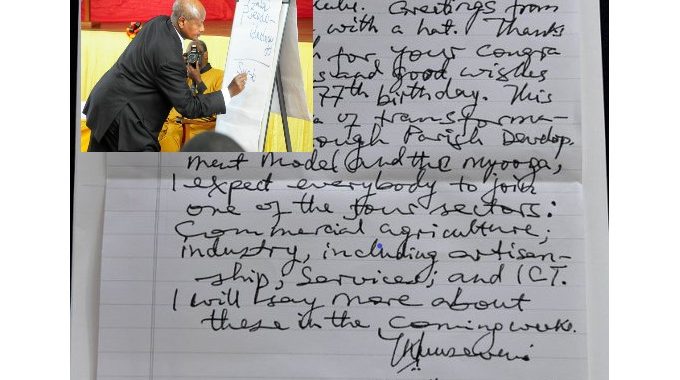 Greetings from
with a hat. Thanks
for your congra
s and good wishes
77th birthday. This
a of transforma-
ough Parish Develop-
ment Model and the myooga,
I expect everybody to join
one of the four sectors:
Commercial agriculture;
industry, including artisan-
ship; Services; and ICT.
I will say more about
these in the coming weeks.